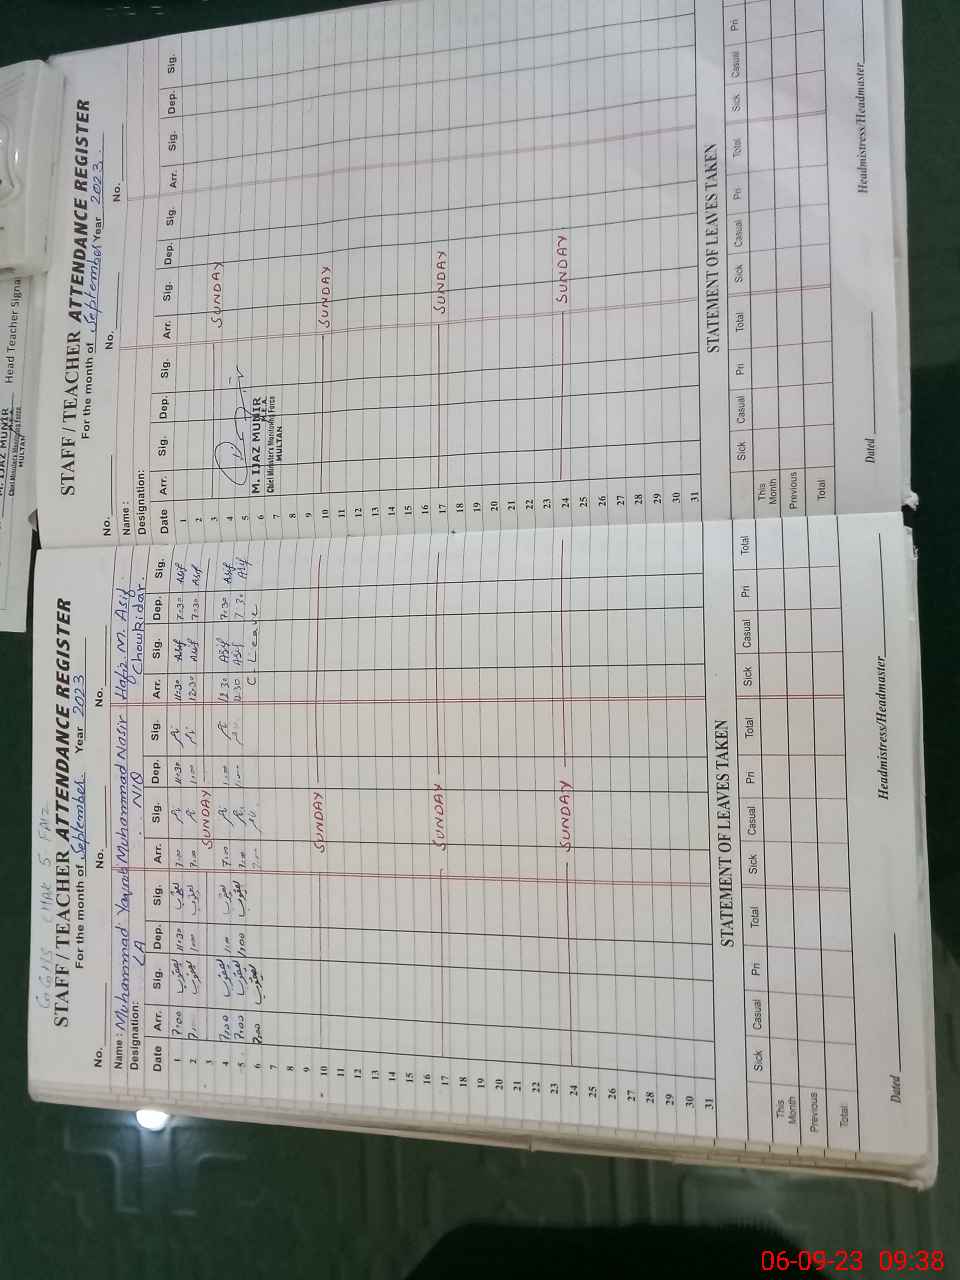 GGHS CHAK 5 FAIZ
STAFF / TEACHER ATTENDANCE REGISTER
For the month of September. Year 2023
No. No. No.
Name : Muhammad Yaqoob Muhammad Nasir Hafiz M. Asif
Designation: LA N/Q Chowkidar.
Date Arr. Sig. Dep. Sig. Arr. Sig. Dep. Sig. Arr. Sig. Dep. Sig.
1 7:00 یعقوب 11:30 یعقوب 7:00 11:30 11:30 Asif 7:30 Asif
2 یعقوب 1:00 یعقوب 7:00 1:00 12:30 Asif 7:30 Asif
3 SUNDAY
4 7:00 یعقوب 1:00 یعقوب 7:00 1:00 12:30 Asif 7:30 Asif
5 7:00 یعقوب 1:00 یعقوب 7:00 1:00 12:30 Asif 7:30 Asif
6 7:00 یعقوب 7:00 C. Leave
7
8
9
10 SUNDAY
11
12
13
14
15
16
17 SUNDAY
18
19
20
21
22
23
24 SUNDAY
25
26
27
28
29
30
31
STATEMENT OF LEAVES TAKEN
Sick Casual Pri Total Sick Casual Pri Total Sick Casual Pri Total
This Month
Previous
Total
Dated Headmistress/Headmaster
STAFF / TEACHER ATTENDANCE REGISTER
For the month of September Year 2023.
No. No. No.
Name :
Designation:
Date Arr. Sig. Dep. Sig. Arr. Sig. Dep. Sig. Arr. Sig. Dep. Sig.
1
2
3 SUNDAY
4
5
6
7
8
9
10 SUNDAY
11
12
13
14
15
16
17 SUNDAY
18
19
20
21
22
23
24 SUNDAY
25
26
27
28
29
30
31
M. IJAZ MUNIR
M.E.A.
Chief Minister's Monitoring Force
MULTAN
STATEMENT OF LEAVES TAKEN
Sick Casual Pri Total Sick Casual Pri Total Sick Casual Pri
This Month
Previous
Total
Dated Headmistress/Headmaster
Head Teacher Signa
M. IJAZ MUNIR
M.E.A.
Chief Minister's Monitoring Force
MULTAN
06-09-23 09:38